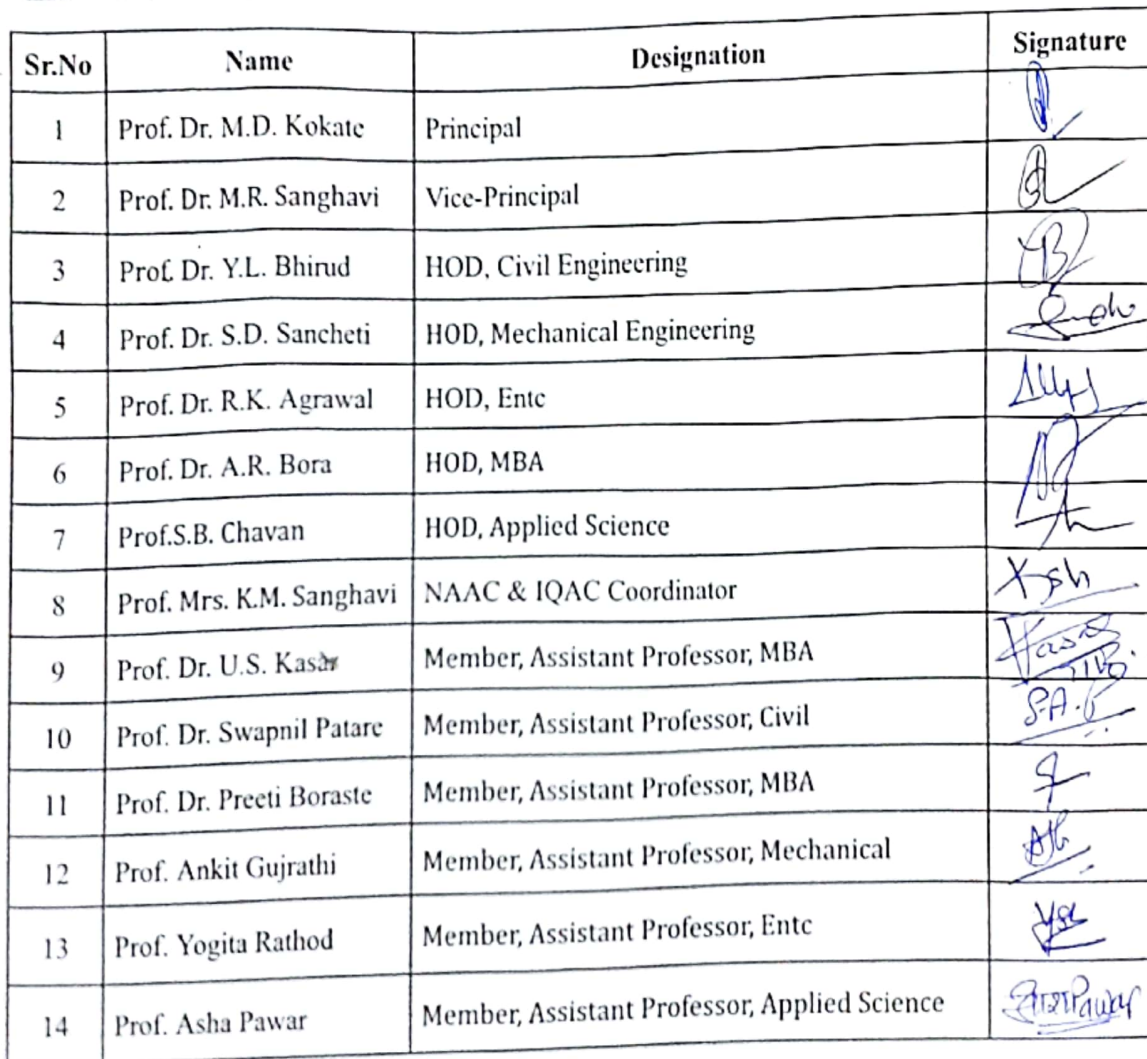 Sr.No Name Designation Signature
1 Prof. Dr. M.D. Kokate Principal
2 Prof. Dr. M.R. Sanghavi Vice-Principal
3 Prof. Dr. Y.L. Bhirud HOD, Civil Engineering
4 Prof. Dr. S.D. Sancheti HOD, Mechanical Engineering
5 Prof. Dr. R.K. Agrawal HOD, Entc
6 Prof. Dr. A.R. Bora HOD, MBA
7 Prof.S.B. Chavan HOD, Applied Science
8 Prof. Mrs. K.M. Sanghavi NAAC & IQAC Coordinator
9 Prof. Dr. U.S. Kasar Member, Assistant Professor, MBA
10 Prof. Dr. Swapnil Patare Member, Assistant Professor, Civil S.A.P
11 Prof. Dr. Preeti Boraste Member, Assistant Professor, MBA
12 Prof. Ankit Gujrathi Member, Assistant Professor, Mechanical
13 Prof. Yogita Rathod Member, Assistant Professor, Entc
14 Prof. Asha Pawar Member, Assistant Professor, Applied Science Pawar